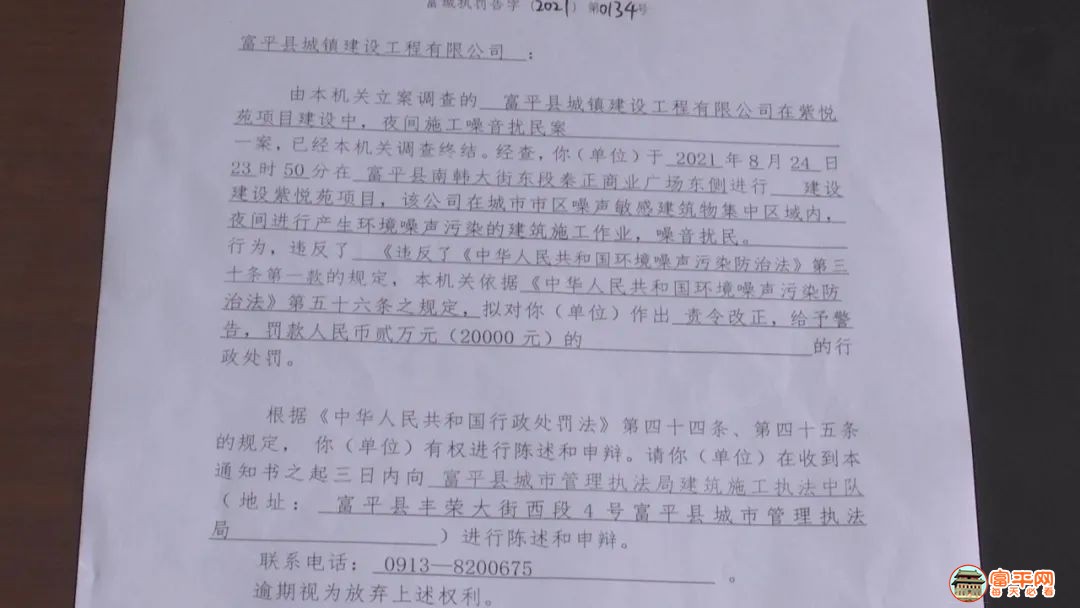 富城执罚告字（2021）第0134号
富平县城镇建设工程有限公司：
由本机关立案调查的 富平县城镇建设工程有限公司在紫悦
苑项目建设中，夜间施工噪音扰民案
一案，已经本机关调查终结。经查，你（单位）于 2021 年 8 月 24 日
23 时 50 分在 富平县南韩大街东段秦正商业广场东侧进行 建设
建设紫悦苑项目，该公司在城市市区噪声敏感建筑物集中区域内，
夜间进行产生环境噪声污染的建筑施工作业，噪音扰民。
行为，违反了 《违反了《中华人民共和国环境噪声污染防治法》第三
十条第一款的规定，本机关依据《中华人民共和国环境噪声污染防
治法》第五十六条之规定，拟对你（单位）作出 责令改正，给予警
告，罚款人民币贰万元（20000 元）的 的行
政处罚。
根据《中华人民共和国行政处罚法》第四十四条、第四十五条
的规定， 你（单位）有权进行陈述和申辩。请你（单位）在收到本
通知书之起三日内向 富平县城市管理执法局建筑施工执法中队
（地址： 富平县丰荣大街西段 4 号富平县城市管理执法
局 ）进行陈述和申辩。
联系电话： 0913—8200675 。
逾期视为放弃上述权利。
富平网
每天必看